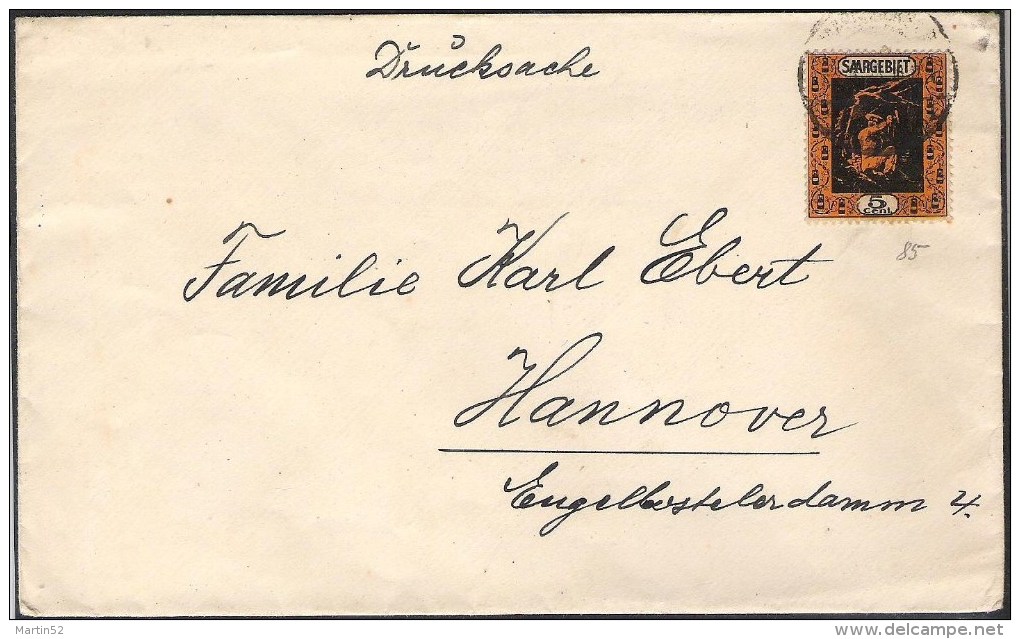 Drucksache
SAARGEBIET
5
Cent.
85
Familie Karl Ebert
Hannover
Engelbostelerdamm 4.
Martin52
http://www.delcampe.net